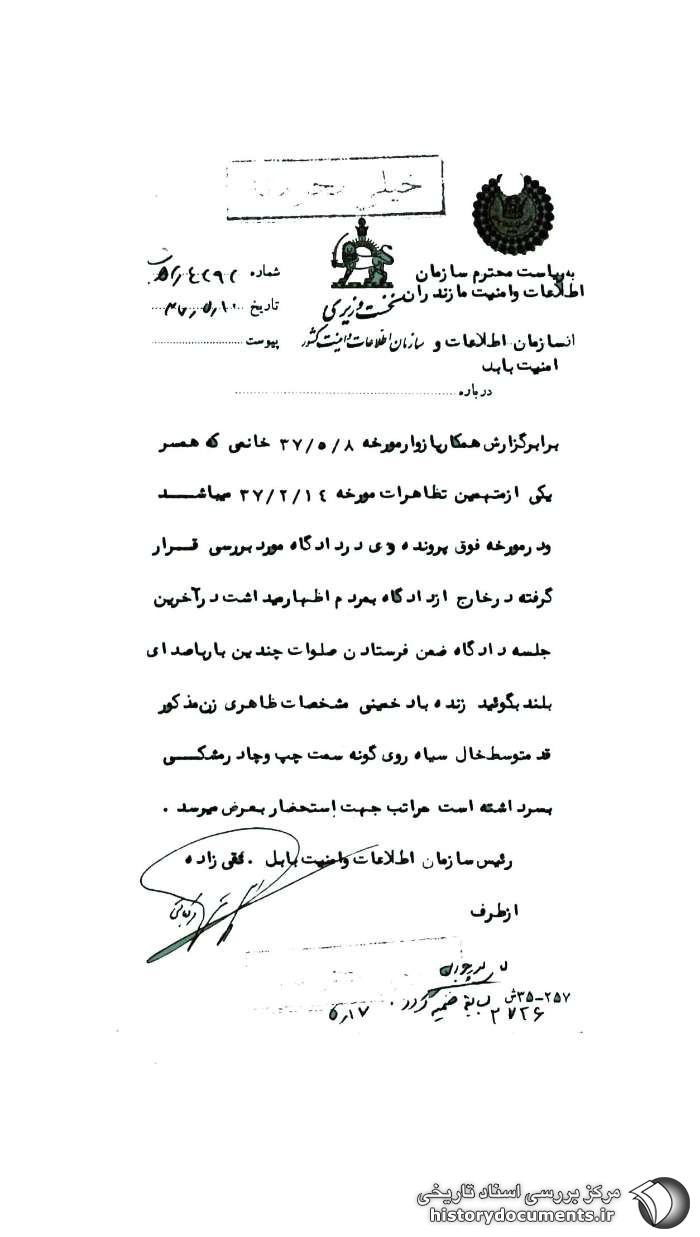 خیلی محرمانه
به ریاست محترم سازمان
اطلاعات وامنیت مازندران
نخست وزیری
شماره
تاریخ
ازسازمان اطلاعات و
سازمان اطلاعات و امنیت کشور
پیوست
امنیت بابل
درباره
برابرگزارش همکاربازوارمورخه ۳۷/۵/۸ خانمی که همسر
یکی ازمتهمین تظاهرات مورخه ۳۷/۲/۱۴ میباشد
ودرمورخه فوق پرونده وی دردادگاه موردبررسی قرار
گرفته درخارج ازدادگاه بمردم اظهارمیداشت درآخرین
جلسه دادگاه ضمن فرستادن صلوات چندین بارباصدای
بلندبگوئید زنده باد خمینی مشخصات ظاهری زن مذکور
قد متوسط خال سیاه روی گونه سمت چپ وچادرمشکی
بسرداشته است مراتب جهت استحضار بعرض میرسد .
رئیس سازمان اطلاعات وامنیت بابل . تقی زاده
ازطرف
۳۵-۲۵۷ش
ضمیمه گردد .
۲۷۲۶
مرکز بررسی اسناد تاریخی
historydocuments.ir